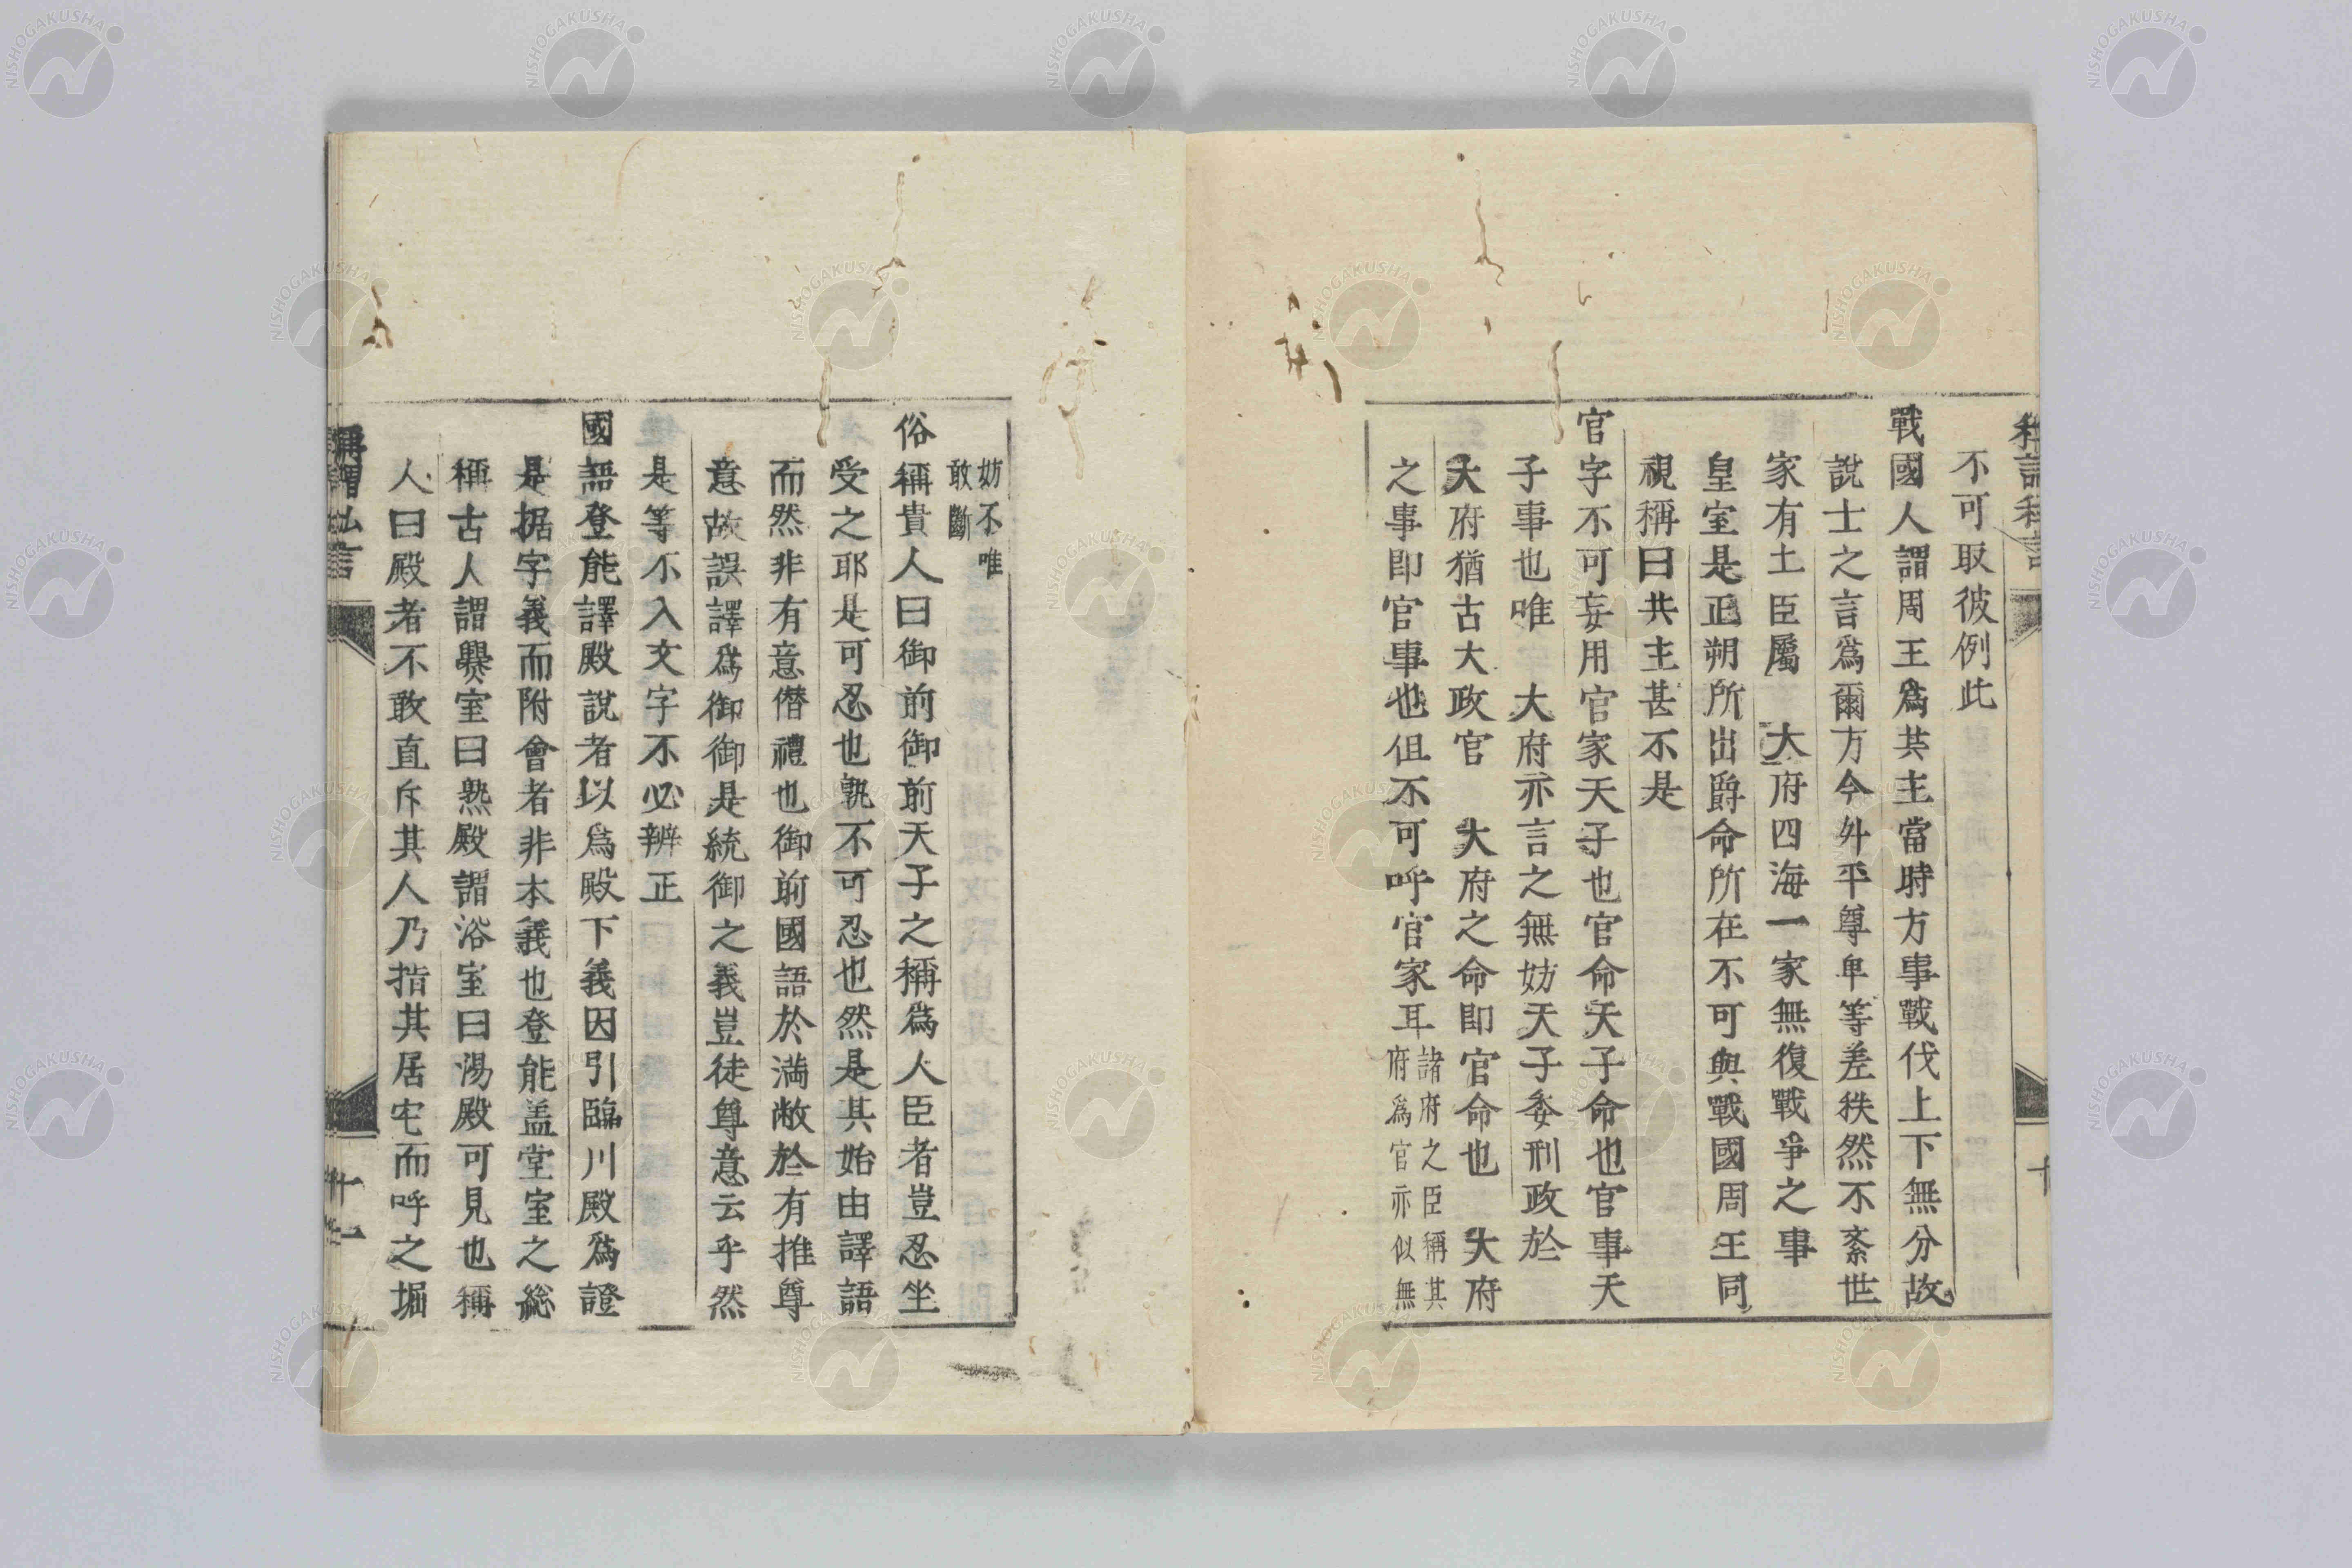 不可取彼例此
戰國人謂周王爲共主當時方事戰伐上下無分故
說士之言爲爾方今外平尊卑等差秩然不紊世
家有土臣屬　大府四海一家無復戰爭之事
皇室是正朔所出爵命所在不可與戰國周王同
視稱曰共主甚不是
官字不可妄用官家天子也官命天子命也官事天
子事也唯　大府亦言之無妨天子委刑政於
大府猶古大政官　大府之命即官命也　大府
之事即官事也但不可呼官家耳諸府之臣稱其
府爲官亦似無
妨不唯
敢斷
俗稱貴人曰御前御前天子之稱爲人臣者豈忍坐
受之耶是可忍也孰不可忍也然是其始由譯語
而然非有意僭禮也御前國語於満敝於有推尊
意故誤譯爲御御是統御之義豈徒尊意云乎然
是等不入文字不必辨正
國語登能譯殿說者以爲殿下義因引臨川殿爲證
是据字義而附會者非本義也登能盖堂室之総
稱古人謂爨室曰熟殿謂浴室曰湯殿可見也稱
人曰殿者不敢直斥其人乃指其居宅而呼之堀
稱謂私言
十一
NISHOGAKUSHA